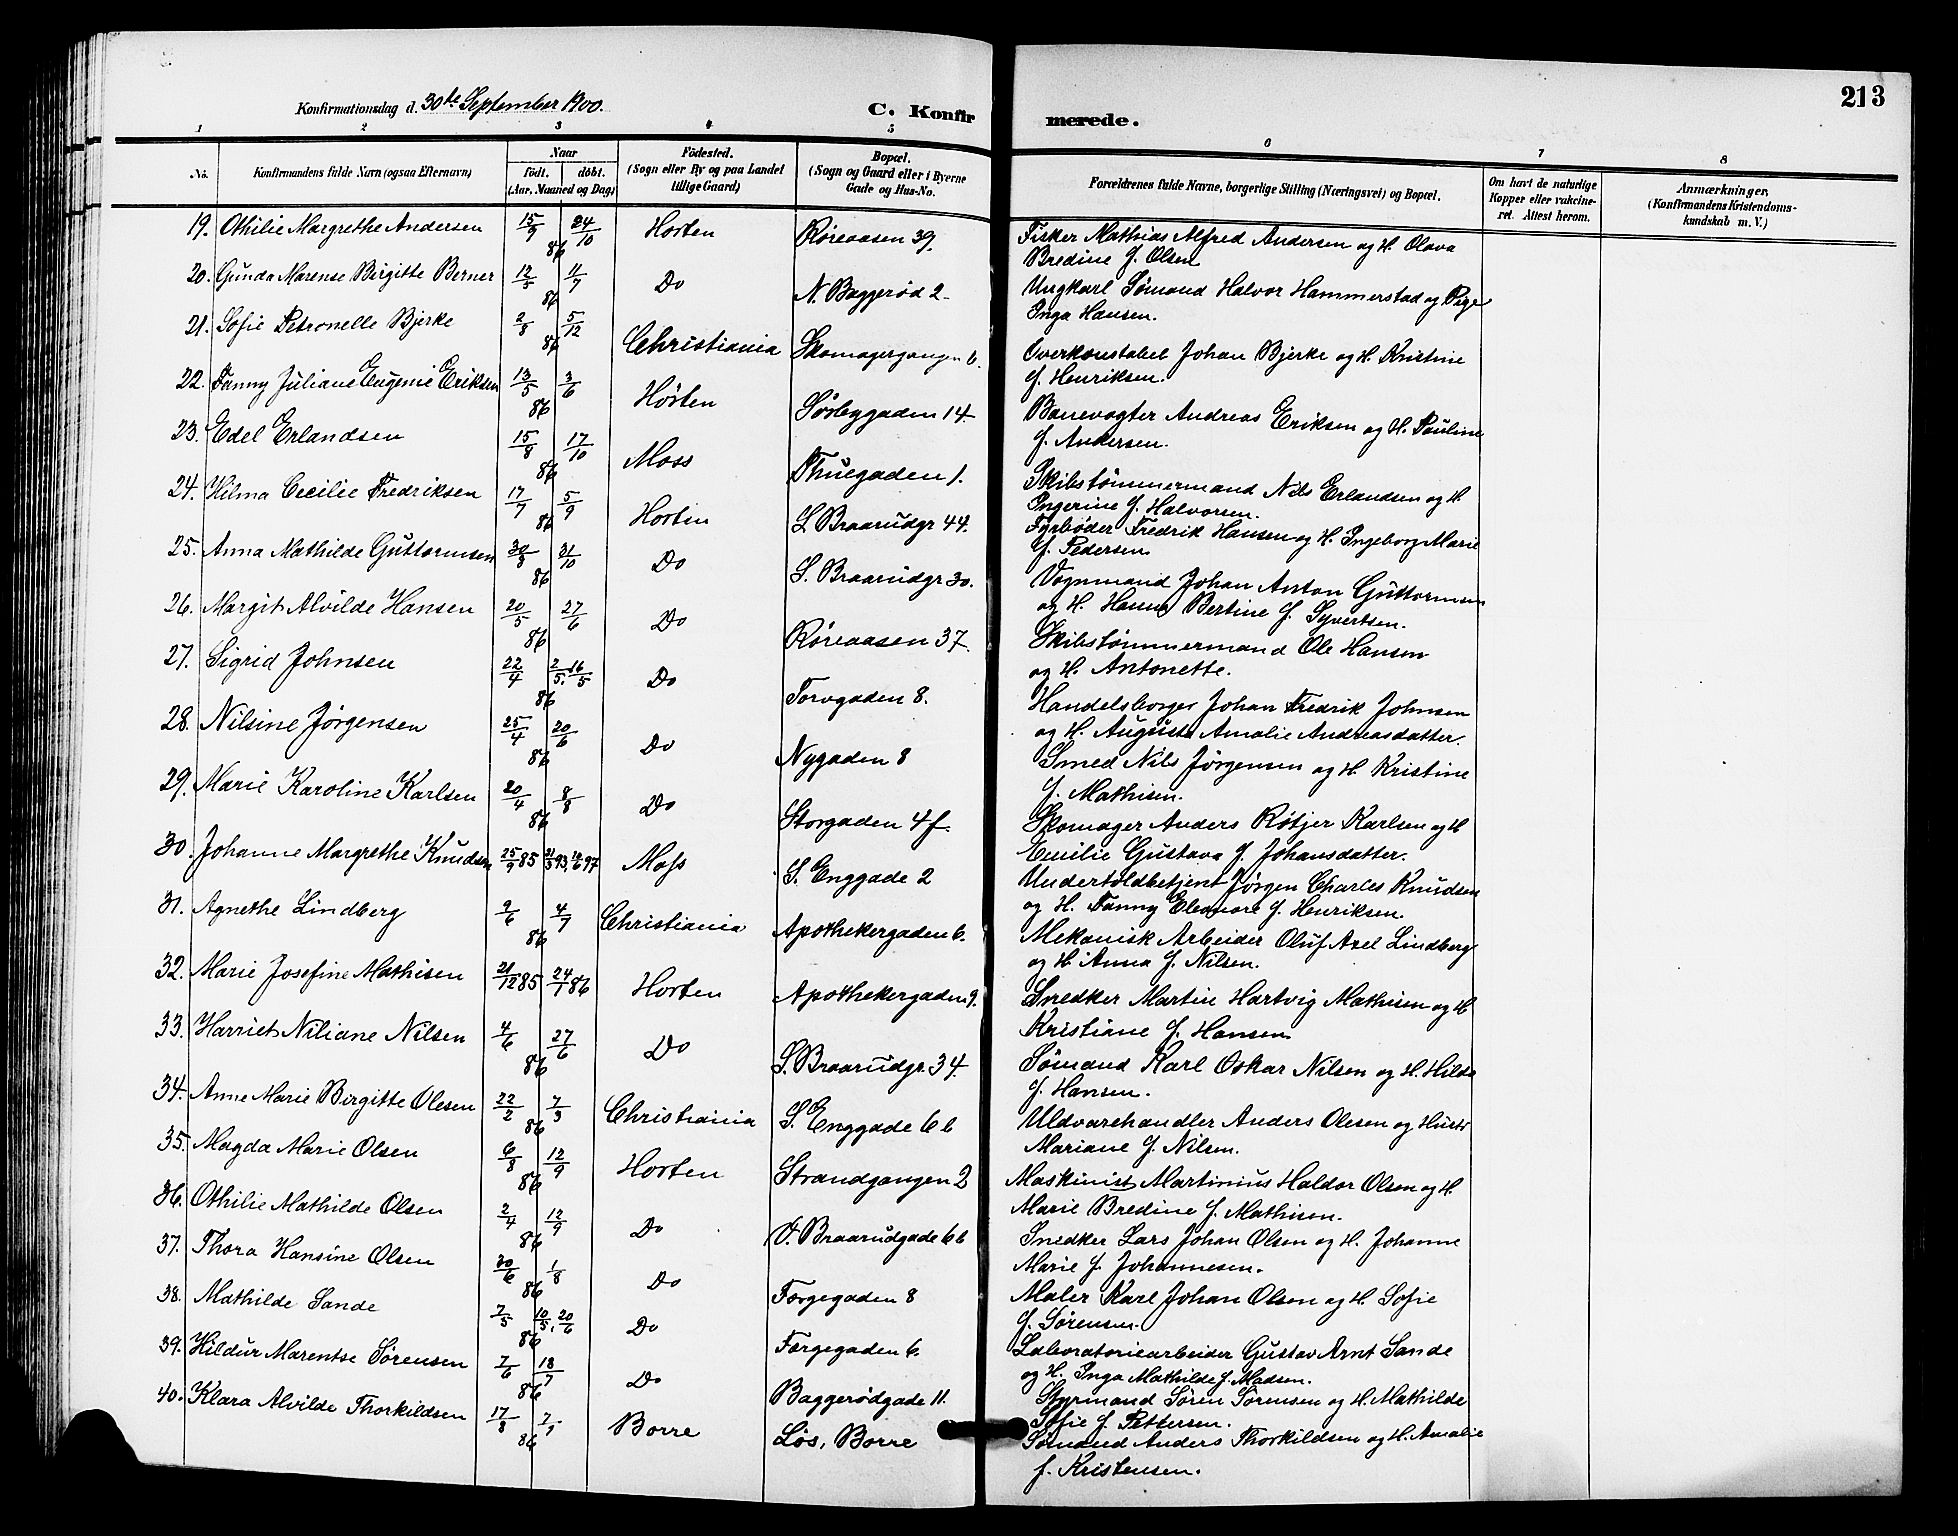 213
Konfirmationsdag d. 30te September 1900.
C. Konfirmerede.
1 2 3 4 5 6 7 8
No. Konfirmandens fulde Navn (ogsaa Efternavn) Naar födt. döbt. (Aar, Maaned og Dag) Födested. (Sogn eller By og paa Landet tillige Gaard) Bopæl. (Sogn og Gaard eller i Byerne Gade og Hus-No. Forældrenes fulde Navne, borgerlige Stilling (Næringsvei) og Bopæl. Om havt de naturlige Kopper eller vakcineret. Attest herom. Anmærkninger, (Konfirmandens Kristendomskundskab m. V.)
19. Othilie Margrethe Andersen 15/9 86 24/10 Horten Røreaasen 39. Fisker Mathias Alfred Andersen og H. Olava
Bredine f. Olsen
20. Gunda Marense Birgitte Berner 12/5 86 11/7 Do N. Baggerød 2. Ungkarl Sømand Halvor Hammerstad og Pige
Inga Hansen.
21. Sofie Petronelle Bjerke 2/8 86 5/12 Christiania Skomagergangen 6. Overkonstabel Johan Bjerke og H. Kristine
f. Henriksen.
22. Fanny Juliane Eugenie Eriksen 13/5 86 3/6 Horten Sørbygaden 14. Banevogter Andreas Eriksen og H. Pauline
f. Andersen.
23. Edel Erlandsen 15/8 86 17/10 Moss Thuegaden 1. Skibstømmermand Nils Erlandsen og H.
Ingerine f. Halvorsen.
24. Hilma Cecilie Fredriksen 17/7 86 5/9 Horten L. Braarudgr 44. Fyrbøder Fredrik Hansen og H. Ingeborg Marie
f. Pedersen
25. Anna Mathilde Guttormsen 30/8 86 31/10 Do S. Braarudgr 30. Vognmand Johan Anton Guttormsen
og H. Hanna Bertine f. Syvertsen.
26. Margit Alvilde Hansen 20/5 86 27/6 Do Røreaasen 37. Skibstømmermand Ole Hansen
og H. Antonette.
27. Sigrid Johnsen 22/4 86 2/5. 16/5 Do Torvgaden 8. Handelsborger Johan Fredrik Johnsen
og H. Augusta Amalie Andreasdatter.
28. Nilsine Jørgensen 25/4 86 20/6 Do Nygaden 8 Smed Nils Jørgensen og H. Kristine
f. Mathisen.
29. Marie Karoline Karlsen 20/4 86 8/8 Do Storgaden 4f. Skomager Anders Røtjer Karlsen og H
Cecilie Gustava f. Johansdatter.
30. Johanne Margrethe Knudsen 25/9 85 Moss S. Enggade 2 Undertoldbetjent Jørgen Charles Knudsen
og H. Fanny Eleonore f. Henriksen.
31. Agnethe Lindberg 9/6 86 4/7 Christiania Apothekergaden 6. Mekanisk Arbeider Oluf Axel Lindberg
og H. Anna f. Nilsen.
32. Marie Josefine Mathisen 21/12 85 24/1 86 Horten Apothekergaden 9. Snedker Martin Hartvig Mathisen og H
Kristiane f. Hansen
33. Harriet Niliane Nilsen 4/6 86 27/6 Do S. Braarudgr. 34. Sømand Karl Oskar Nilsen og H. Hilda
f. Hansen.
34. Anne Marie Birgitte Olesen 22/2 86 7/3 Christiania S. Enggade 6 b Uldvarehandler Anders Olesen og Hustr
Mariane f. Nilsen.
35. Magda Marie Olsen 6/8 86 12/9 Horten Strandgangen 2 Maskinist Martinius Haldor Olsen og H.
Marie Bredine f. Mathisen.
36. Othilie Mathilde Olsen 2/4 86 12/9 Do V. Braarudgade 6 b Snedker Lars Johan Olsen og H. Johanne
Marie f. Johannesen.
37. Thora Hansine Olsen 30/6 86 1/8 Do Færgegaden 8 Maler Karl Johan Olsen og H. Sofie
f. Sørensen.
38. Mathilde Sande 7/5 86 10/5. 20/6 Do Færgegaden 6. Laboratoriearbeider Gustav Arnt Sande
og H. Inga Mathilde f. Madsen.
39. Hildur Marentse Sørensen 7/6 86 18/7 Do Baggerødgade 11. Styrmand Søren Sørensen og H. Mathilde
Sofie f. Pettersen.
40. Klara Alvilde Thorkildsen 17/8 86 Borre Løs, Borre Sømand Anders Thorkildsen og H. Amalie
f. Kristensen.